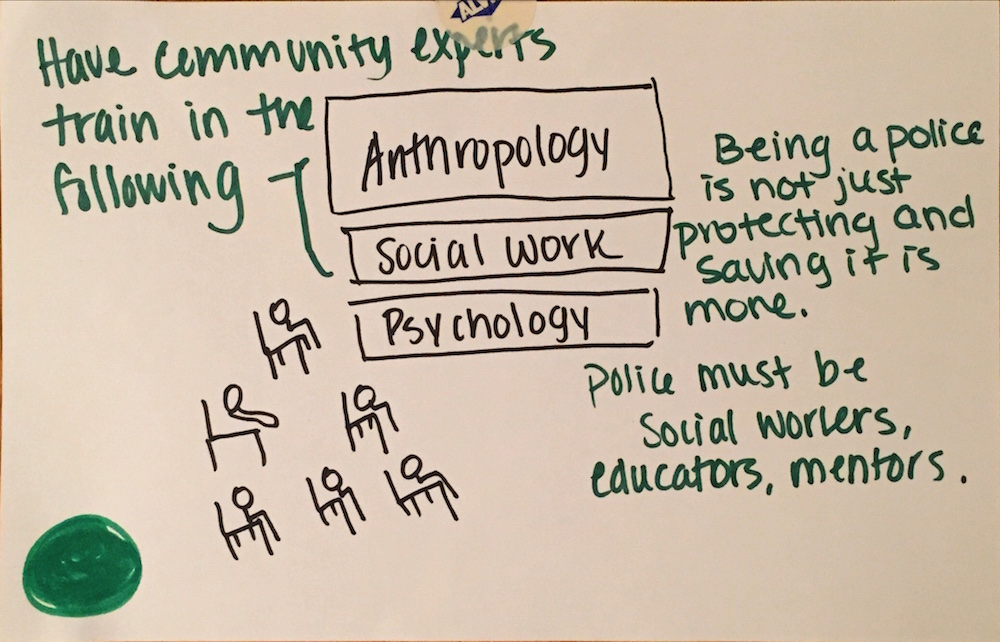 Have community experts
train in the
following
Anthropology
Social work
Psychology
Being a police
is not just
protecting and
saving it is
more.
Police must be
Social workers,
educators, mentors.